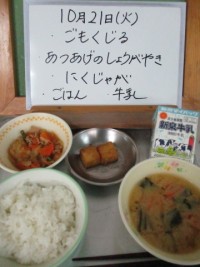 10月21日(火)
・ごもくじる
・あつあげのしょうがやき
・にくじゃが
・ごはん ・牛乳